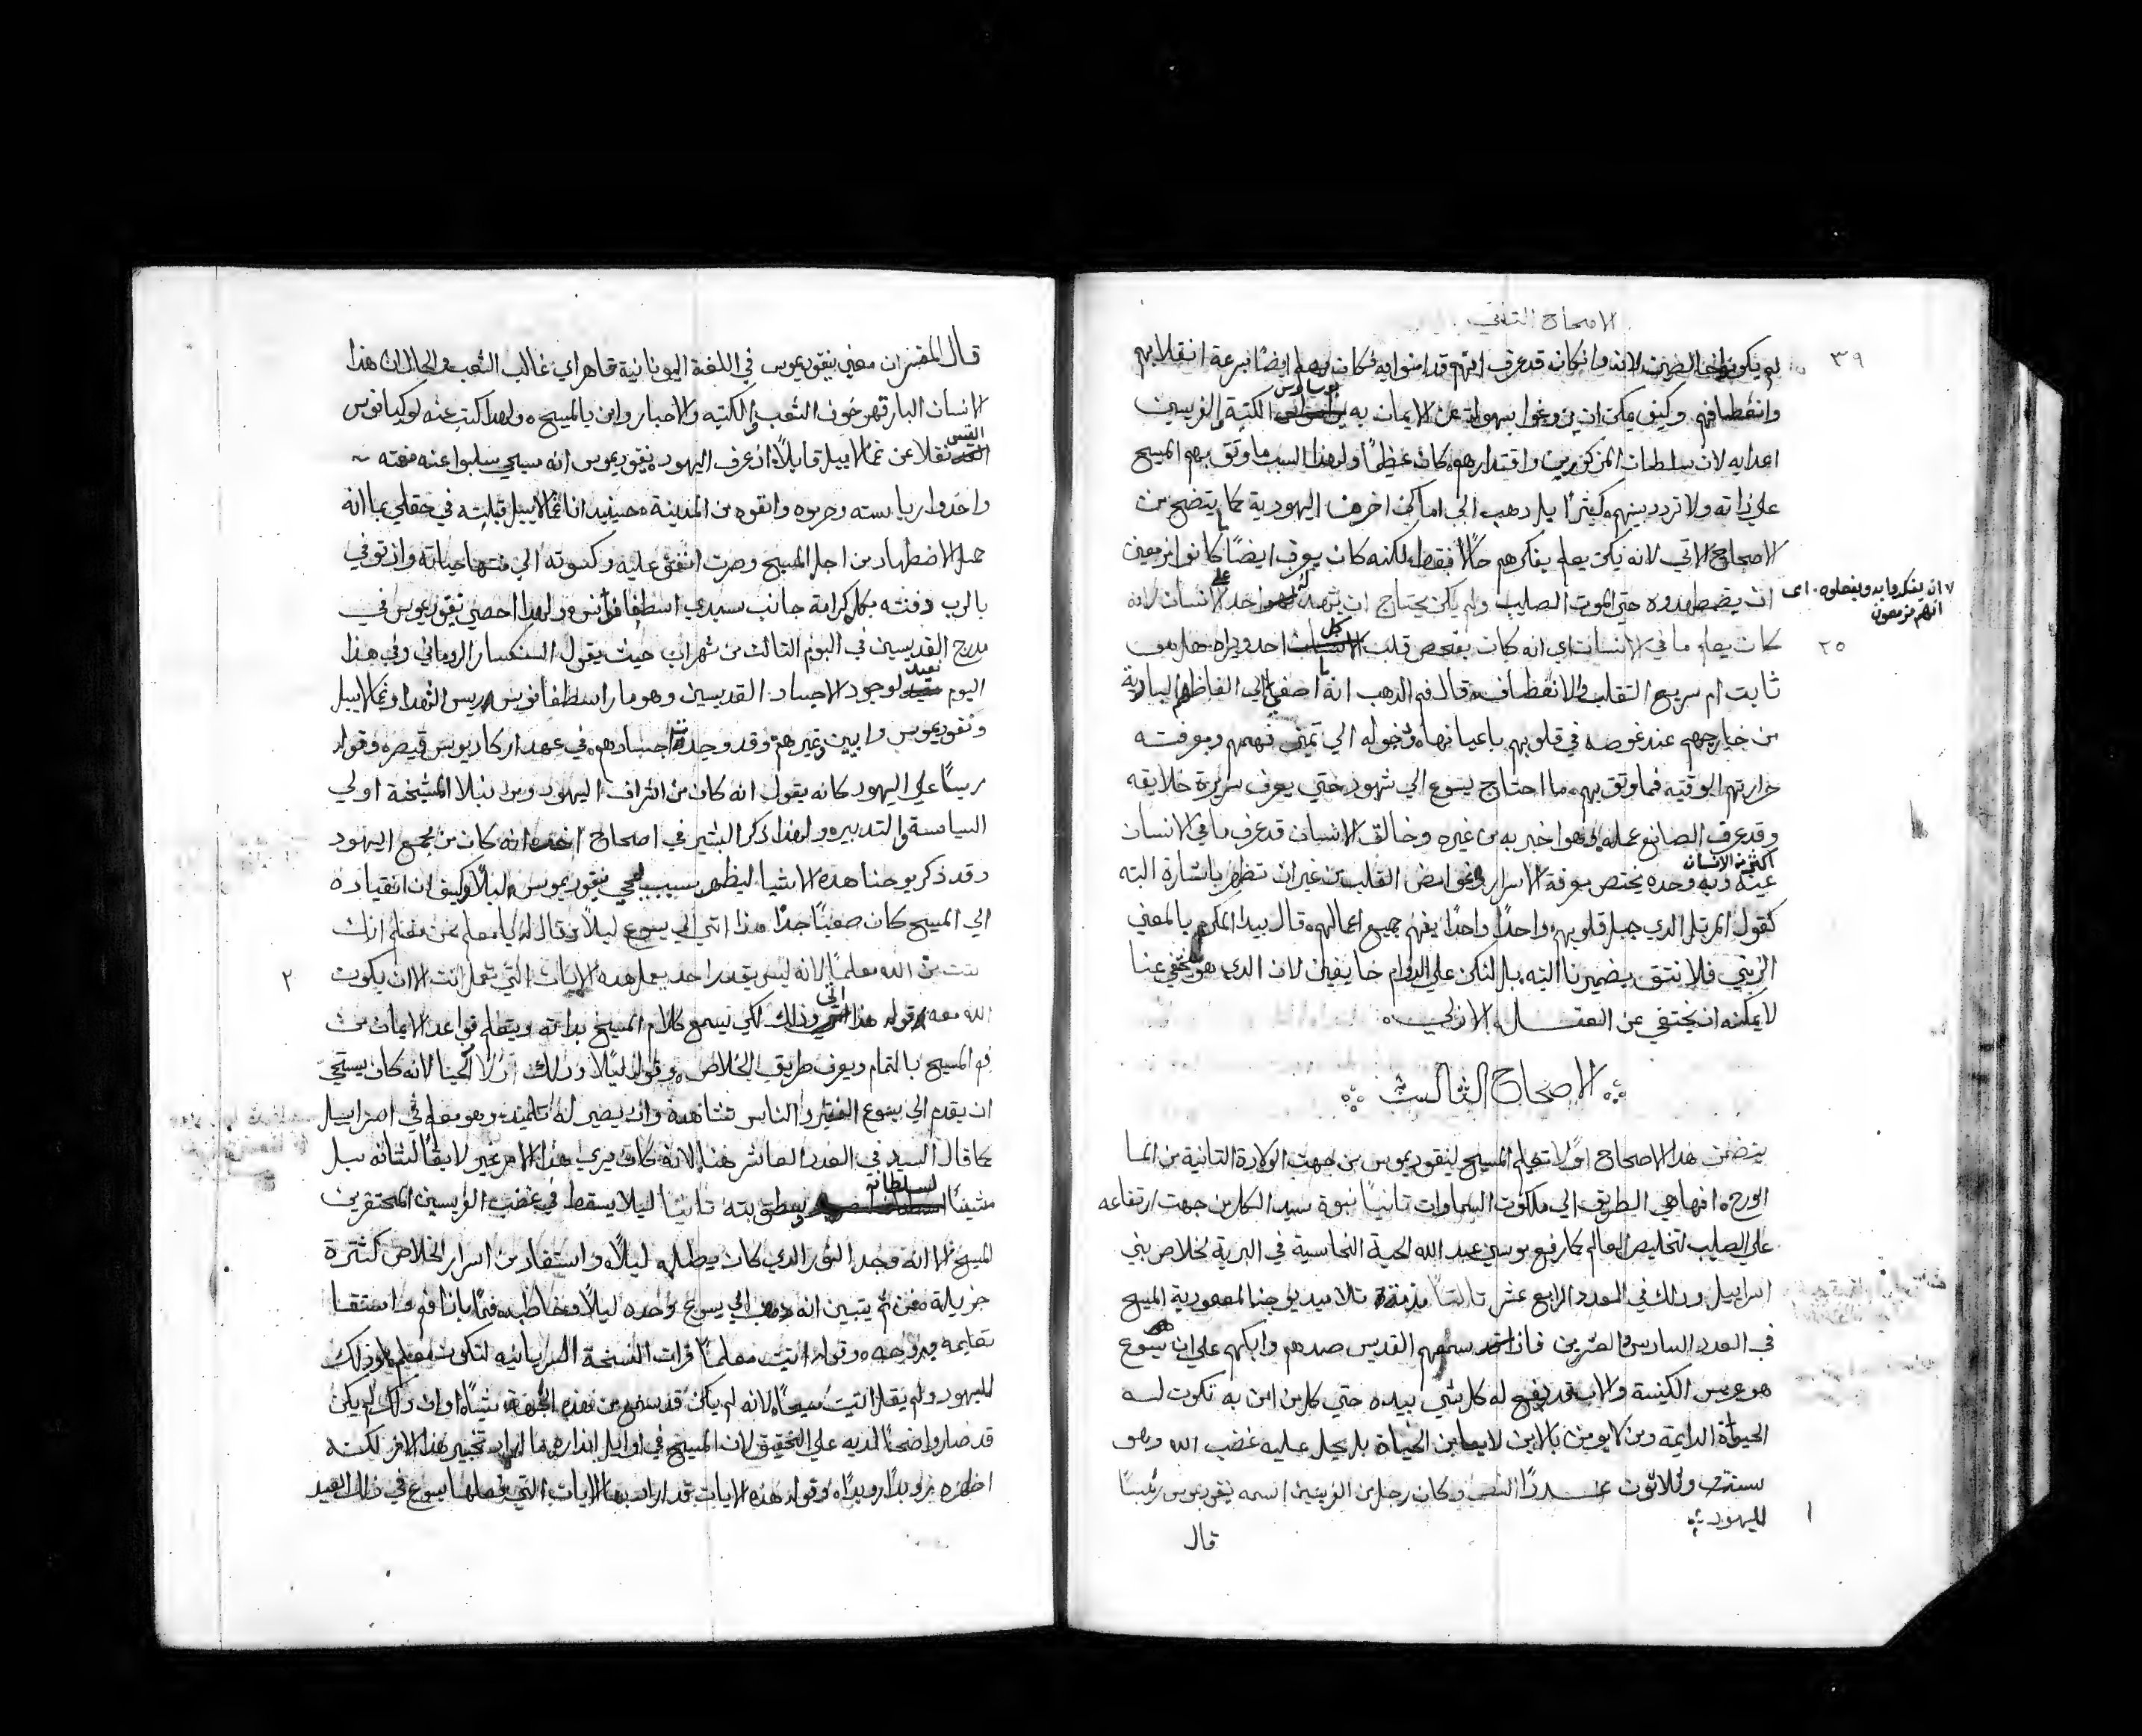 الاصحاح التاني
٣٩
لم يكونوا لانه وان كان قد عرف انهم قد امنوا به فكان يعلم ايضًا سرعة انقلابهم
وانعطافهم وكيف يمكن ان يزوغوا بسهولة عن الايمان به بوساوس الكتبة والفريسين
اعدايه لان سلطان المذكورين واقتدارهم كان عظيمًا ولهذا السبب ما وثق بهم المسيح
على ذاته ولا تردد بينهم كثيرًا بل دهب الي اماكن اخر من اليهودية كما يتضح من
الاصحاح الاتي لانه لم يكن يعلم بفكرهم حالًا فقط لكنه كان يعرف ايضًا ما كانوا مزمعين
٧ ان يفكروا به ويفعلوه . اى
انهم مزمعون
ان يضطهدوه حتى الموت الصليب ولم يكن يحتاج ان يشهد احد على الانسان لانه
٢٥
كان يعلم ما في الانسان اي انه كان يفحص قلب كل احد ويراه هل هو
ثابت ام سريع التقلب والانعطاف وقال فم الدهب انه ما اصغي الي الفاظهم البارزة
من خارجهم عند غوصه في قلوبهم باعيانها ودخوله الي تمييز فهمهم ومعرفته
حرارتهم الوقتية فما وثق بهم ما احتاج يسوع الي شهود حتي يعرف سريرة خلايقه
وقد عرف الصانع عمله وهو اخبر به من غيره وخالق الانسان قد عرف ما في الانسان
اكثر من الانسان
عينه وبه وحده يختص معرفة الاسرار وغوامض القلب من غير ان تظهر باشارة البته
كقول المرتل الدي جبل قلوبهم واحدًا واحدًا يفهم جميع اعمالهم قال بيدا المكرم بالمعني
الرتبي فلا نتق بضميرنا البته بل لنكن علي الدوام خايفين لان الدي هو مخفي عنا
لا يمكنه ان يختفي عن العقل الازلي
الاصحاح الثالث
يتضمن هدا الاصحاح اولًا تعليم المسيح لنيقوديموس من جهت الولادة التانية من الما
والروح انها هي الطريق الي ملكوت السماوات تانيًا نبوة سيد الكل من جهت ارتفاعه
علي الصليب لتخليص العالم كما رفع موسي عبد الله الحية النحاسية في البرية لخلاص بني
اسراييل ودلك في العدد الرابع عشر تالتًا مدمة تلاميد يوحنا لمعمودية المسيح
في العدد السادس والعشرين فاد سمعهم القديس صدهم وابكمهم علي ان يسوع
هو عريس الكنيسة والاب قد دفع له كل شي بيده حتي كل من امن به تكون له
الحيواة الدايمة ومن لا يومن بالابن لا يعاين الحياة بل يحل عليه غضب الله وهو
ستة وثلاثون عددًا النص وكان رجل من الفريسين اسمه نيقوديموس رئيسًا
١
لليهود
قال
قال المفسر ان معني نيقوديموس في اللغة اليونانية قاهر اي غالب الشعب والحال ان هذا
الانسان البار قهر خوف الشعب والكتبه والاحبار وامن بالمسيح ولهدا كتب عنه لوكيانوس
القس نقلا عن غمالاييل قايلًا اد عرف اليهود نيقوديموس انه مسيحي سلبوا عنه نعمته
واخدوا رياسته وحرموه وانفوه من المدينة حينيد انا غمالاييل قبلته في حقلي بما انه
حمل الاضطهاد من اجل المسيح وصرت انفق عليه وكسوته الي منتها حياته واذ توفي
بالرب دفنته بكل كرامة جانب سيدي اسطفانوس ولهدا احصي نيقوديموس في
مدرج القديسين في اليوم التالت من شهر اب حيث يقول السنكسار الروماني وفي هذا
اليوم نعيد لوجود اجساد القديسين وهو مار اسطفانوس ريس الشهدا وغمالاييل
ونيقوديموس وابيبن وغيرهم وقد وجدت اجسادهم في عهد اركاديوس قيصر وقوله
ريسًا علي اليهود كانه يقول انه كان من اشراف اليهود ومن نبلا المشيخة اولي
السياسة والتدبير ولهذا ذكر البشير في اصحاح انه كان من مجمع اليهود
وقد ذكر يوحنا هذه الاشيا ليظهر سبب مجي نيقوديموس ليلًا وكيف ان انقياده
الي المسيح كان صعبًا جدًا هذا اتي الي يسوع ليلًا وقال له يا معلم نحن نعلم انك
٢
اتيت من الله معلمًا لانه ليس يقدر احد يعمل هده الايات التي تعمل انت الا ان يكون
الله معه وقوله هذا اتي وذلك لكي يسمع كلام المسيح بداته ويتعلم قواعد الايمان من
فم المسيح بالتمام ويعرف طريق الخلاص وقوله ليلًا ودلك اولا لحيا لانه كان يستحي
ان يقدم الي يسوع الفقير والناس تشاهده وان يصير له تلميد وهو معلم في اسراييل
كما قال السيد في العدد العاشر هنا لانه كان يري هذا الامر غير لايقًا لشانه بل
مشينًا لسلطانه ومرتبته تانيًا ليلا يسقط في غضب الفريسين المحتقرين
المسيح الا انه وجد النور الدي كان يطلبه ليلًا واستفاد من اسرار الخلاص كثرة
جزيلة فمن ثم يتبين انه دهب الي يسوع وحده ليلًا وخاطبه فمًا بازا فم واستقا
تعليمه من روحه وقوله اتيت معلمًا قرات النسخة السريانيه لتكون معلم ودلك
لليهود ولم يقل اتيت مسيحًا لانه لم يكن قد سمع من هذه الجهة شيًا او ان ذلك لم يكن
قد صار واضحًا لديه علي التحقيق لان المسيح في اوايل انداره ما اراد تخبير هذا الامر لكنه
اظهره رويدًا رويدًا وقوله هذه الايات قد اراد بها الايات التي فعلها يسوع في ذلك العيد